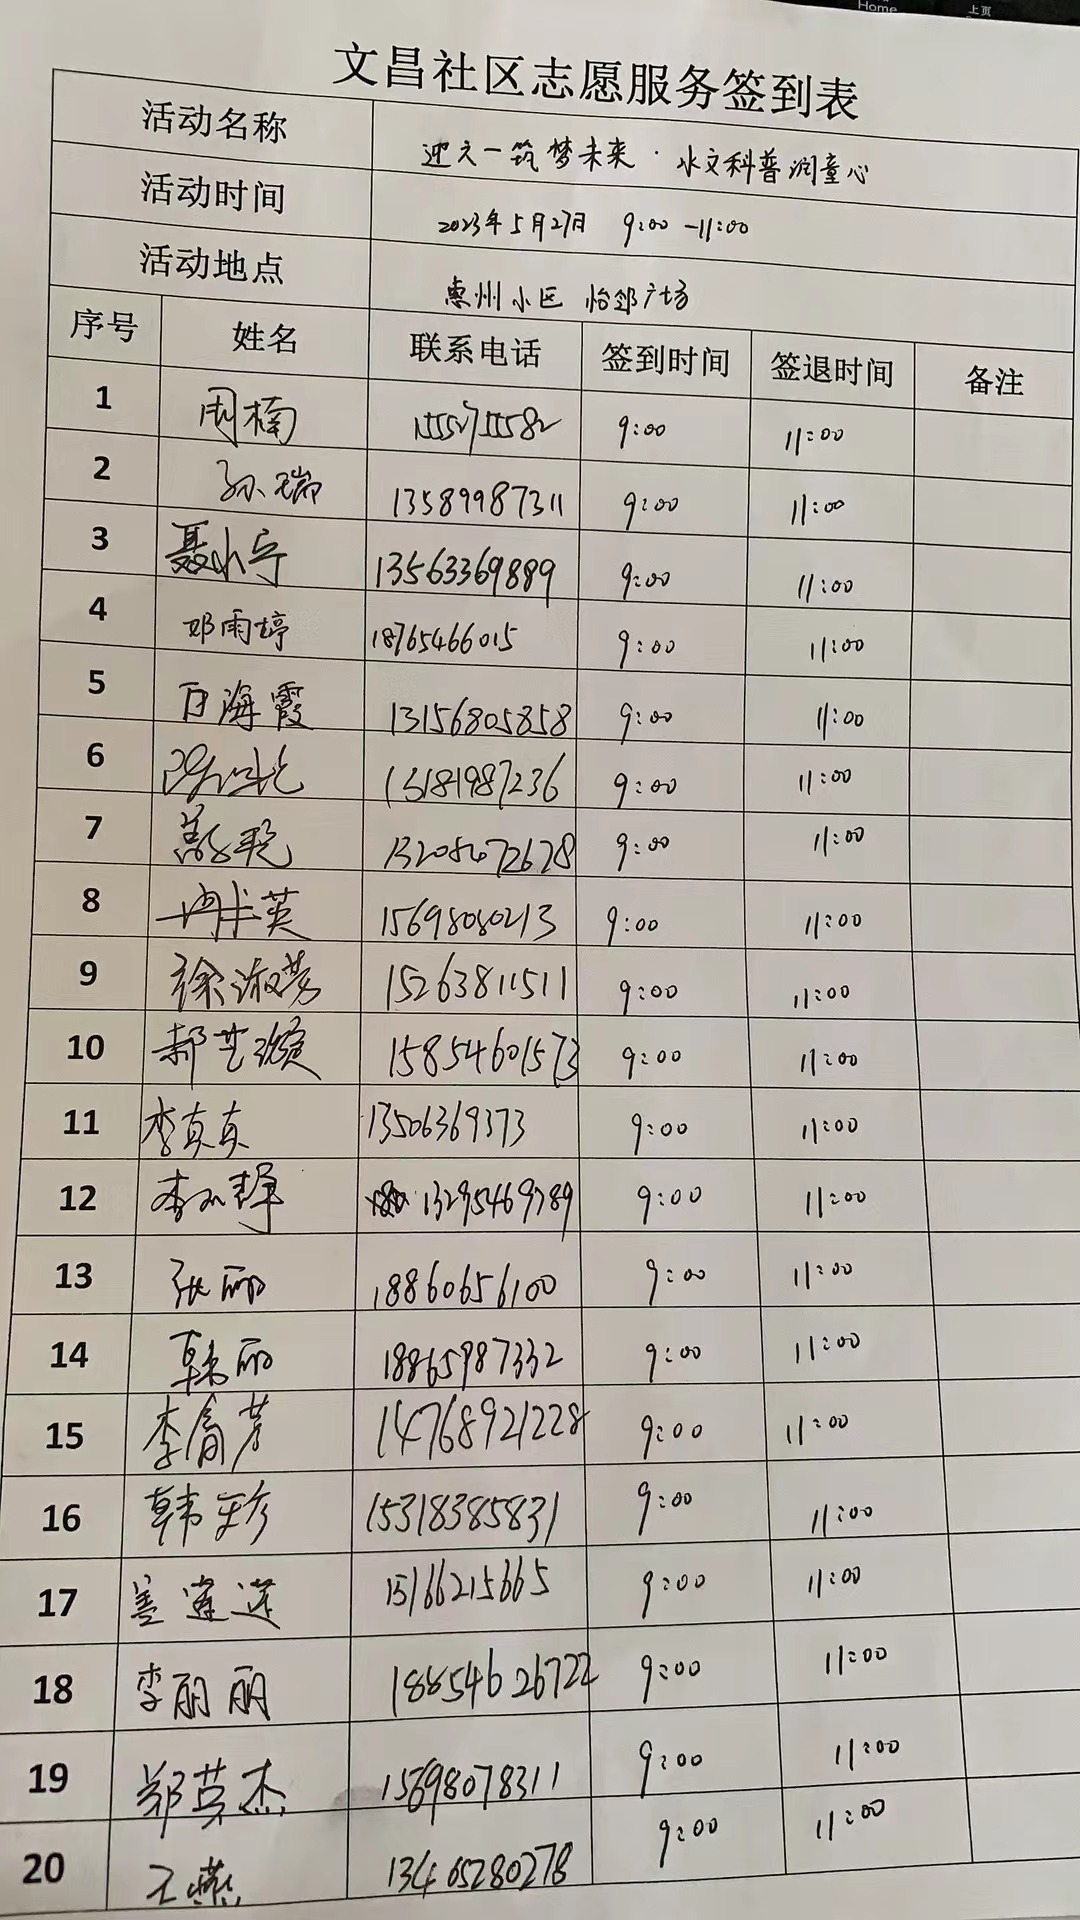 Home
上页
文昌社区志愿服务签到表
活动名称 迎六一筑梦未来·水文科普润童心
活动时间 2023年5月27日 9:00-11:00
活动地点 惠州小区 怡邻广场
序号 姓名 联系电话 签到时间 签退时间 备注
1 周楠 9:00 11:00
2 孙瑞 13589987311 9:00 11:00
3 聂小宁 13563369889 9:00 11:00
4 邓雨婷 18765466015 9:00 11:00
5 白海霞 13156805858 9:00 11:00
6 13181987236 9:00 11:00
7 9:00 11:00
8 15698080213 9:00 11:00
9 徐淑芳 15263811511 9:00 11:00
10 郝艺璇 15854601573 9:00 11:00
11 李真真 13506369373 9:00 11:00
12 13295469789 9:00 11:00
13 张丽 18860656100 9:00 11:00
14 韩丽 18865987332 9:00 11:00
15 14768921228 9:00 11:00
16 韩珍 15318385831 9:00 11:00
17 15166215665 9:00 11:00
18 李丽丽 18854626722 9:00 11:00
19 郑英杰 15698078311 9:00 11:00
20 王燕 13405280278 9:00 11:00